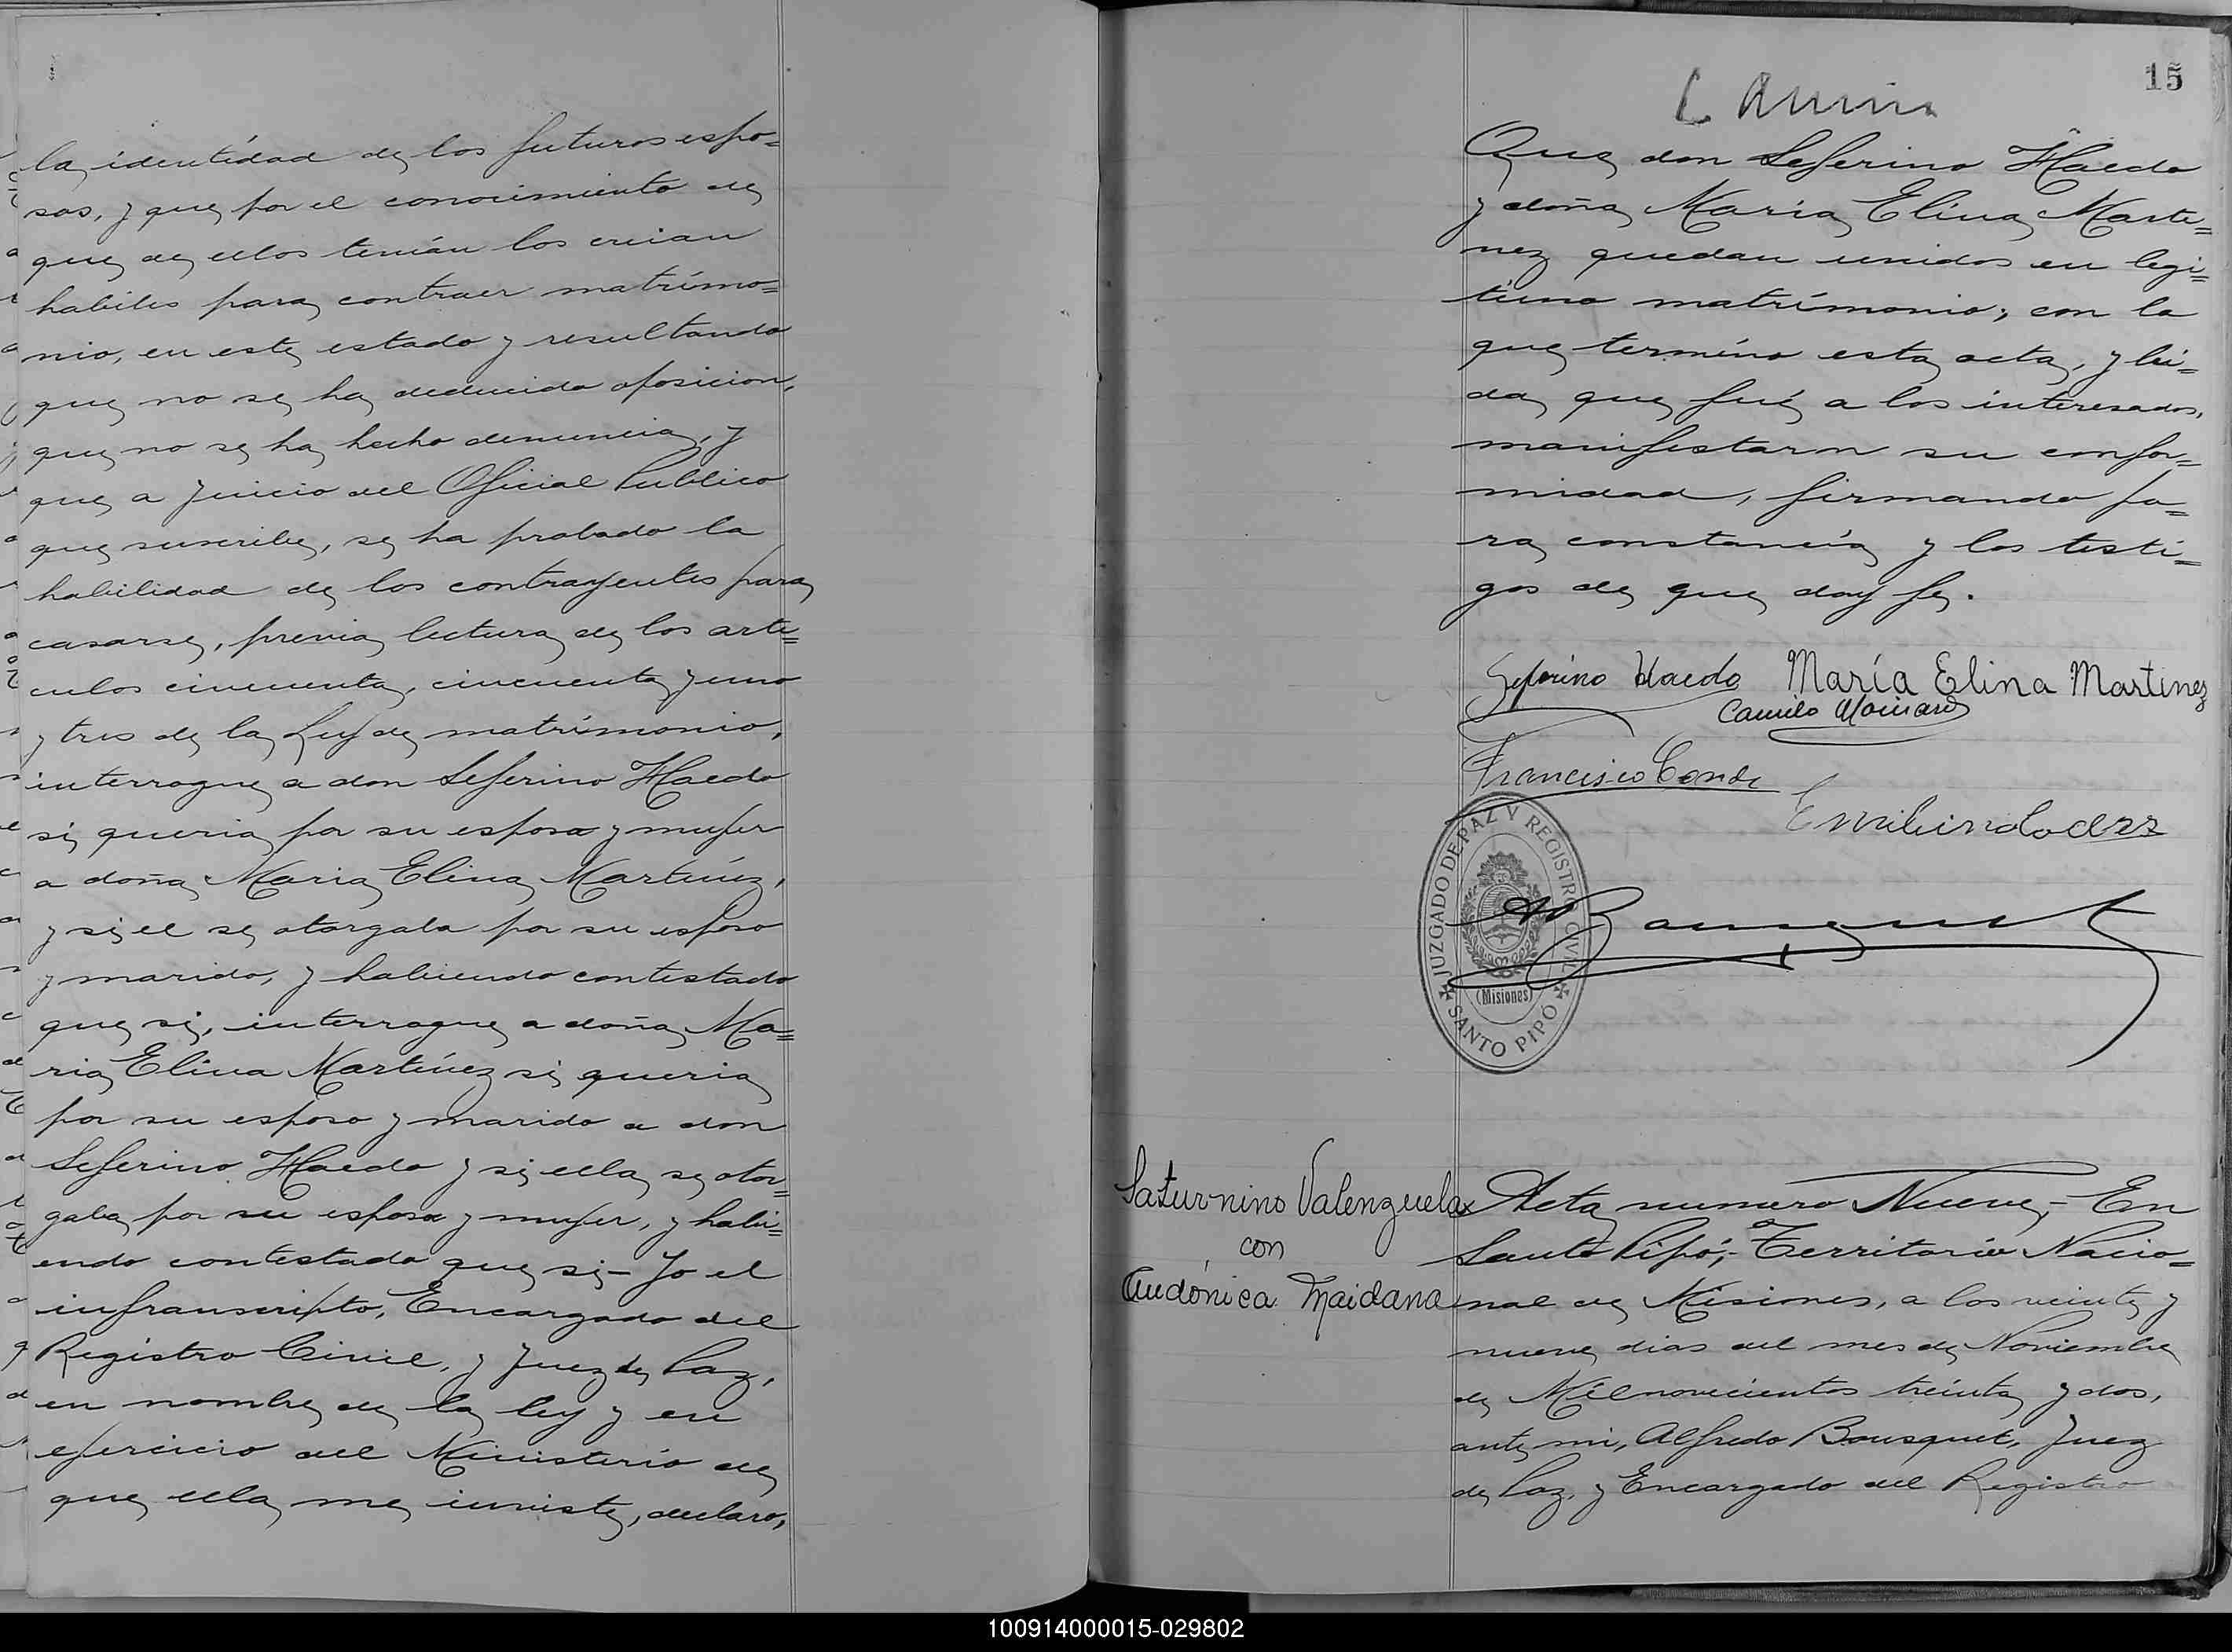 la identidad de los futuros espo=
sos, y que por el conocimiento de
que de ellos tenían los creian
habiles para contraer matrimo=
nio, en este estado y resultando
que no se ha deducido oposicion,
que no se ha hecho denuncia, y
que a juicio del Oficial Publico
que suscribe, se ha probado la
habilidad de los contrayentes para
casarse, previa lectura de los arti=
culos cincuenta, cincuenta y uno
y tres de la Ley de matrimonio,
interrogue a don Seferino Haedo
si queria por su esposa y mujer
a doña Maria Elina Martínez,
y si el se otorgaba por su esposo
y marido, y habiendo contestado
que si, interrogue a doña Ma=
ria Elina Martínez si queria
por su esposo y marido a don
Seferino Haedo y si ella se otor=
gaba por su esposa y mujer, y habi=
endo contestado que si- Yo el
infranscripto, Encargado del
Registro Civil, y Juez de Paz,
en nombre de la ley y en
ejercicio del Ministerio de
que ella me inviste, declaro,
15
Que don Seferino Haedo
y doña María Elina Marti=
nez quedan unidos en legi=
timo matrimonio; con la
que termino esta acta, y leí=
da que fué a los interesados,
manifestaron su confor=
midad, firmando pa=
ra constancia y los testi=
gos de que doy fe.
Seferino Haedo María Elina Martinez
Camilo
Francisco Conde
JUZGADO DE PAZ Y REGISTRO CIVIL
(Misiones)
SANTO PIPÓ
A Bousquet
Saturnino Valenzuela
con
Audónica Maidana
Acta numero Nueve,- En
Santo Pipó,- Territorio Nacio=
nal de Misiones, a los veinte y
nueve dias del mes de Noviembre
de Mil novecientos treinta y dos,
ante mi, Alfredo Bousquet, Juez
de Paz, y Encargado del Registro
100914000015-029802